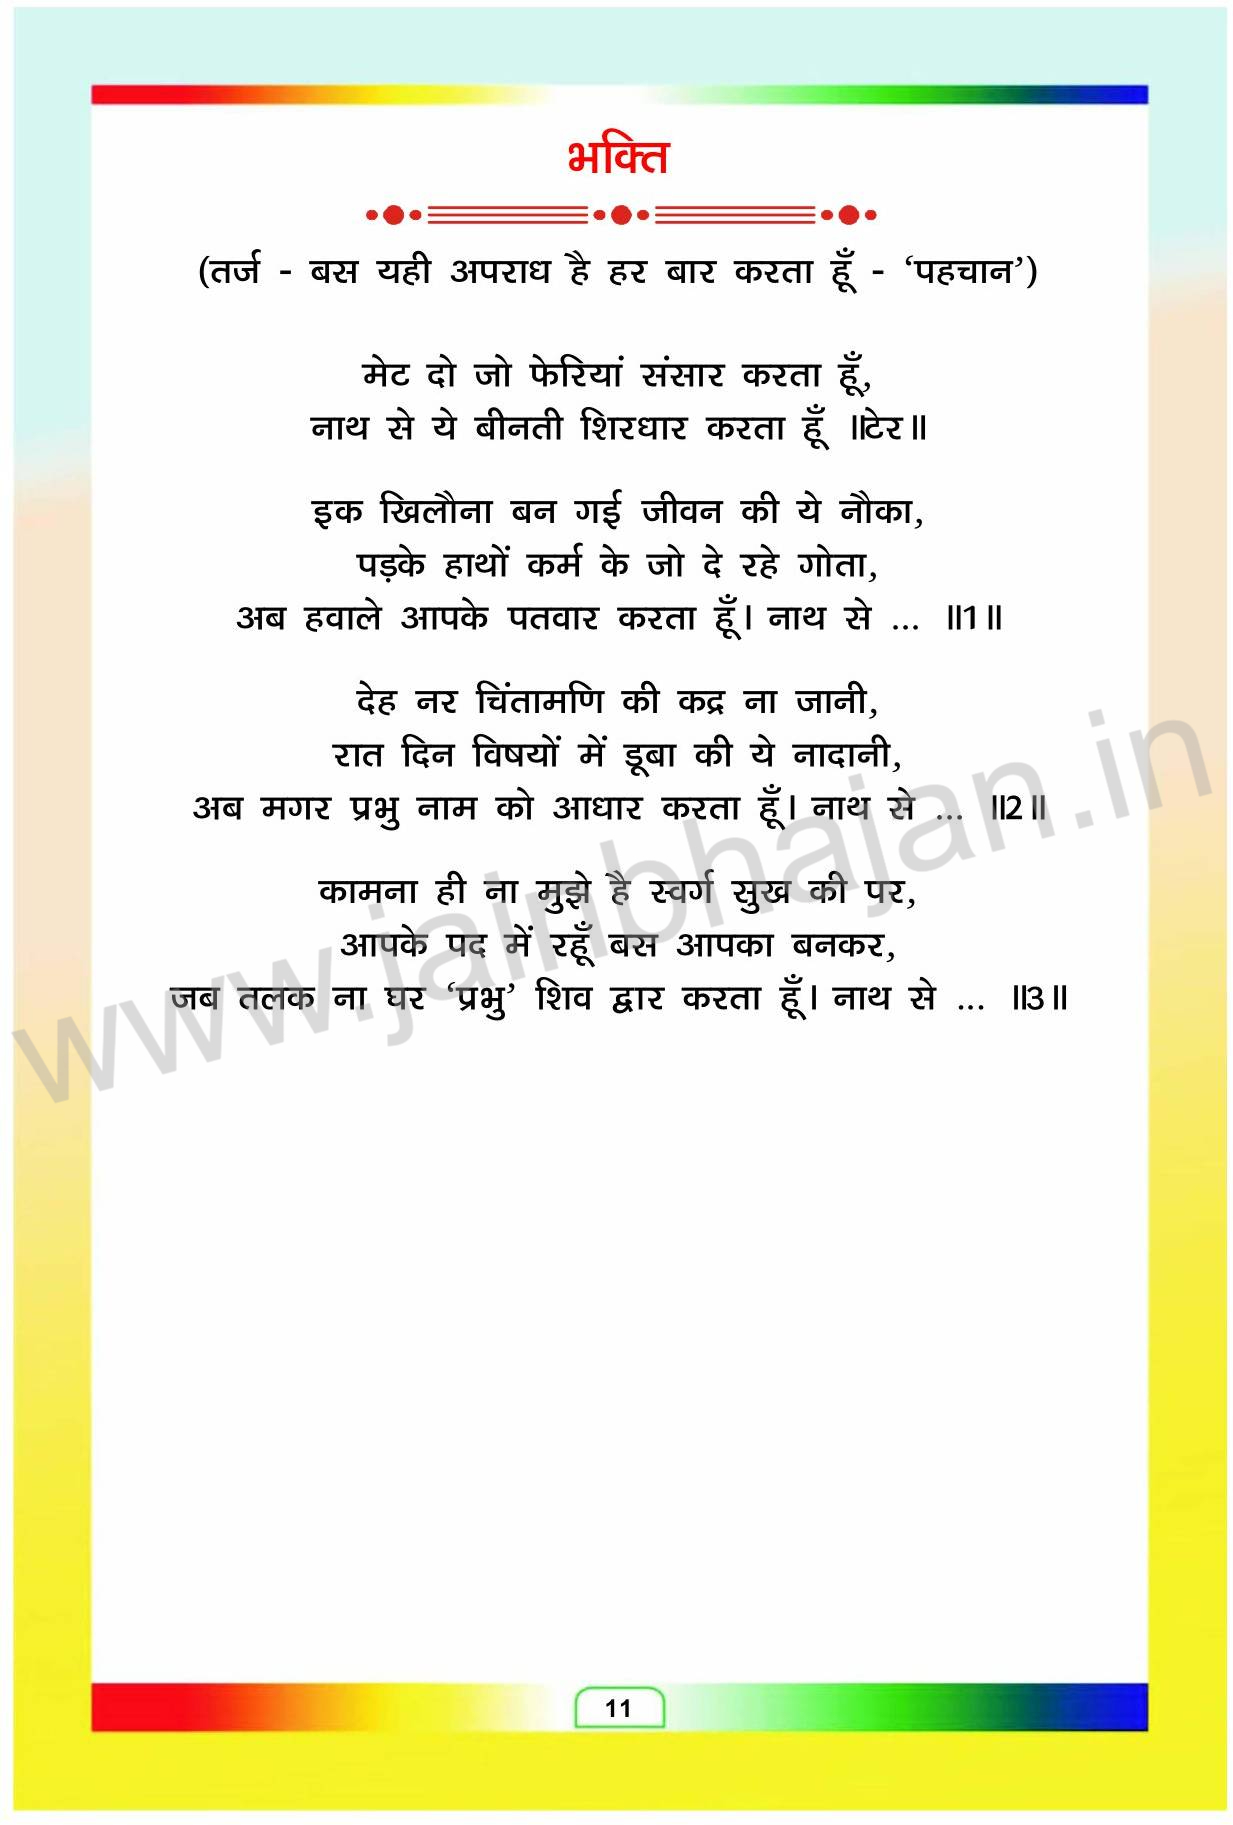 भक्ति
(तर्ज - बस यही अपराध है हर बार करता हूँ - ‘पहचान’)
मेट दो जो फेरियां संसार करता हूँ,
नाथ से ये बीनती शिरधार करता हूँ ॥टेर॥
इक खिलौना बन गई जीवन की ये नौका,
पड़के हाथों कर्म के जो दे रहे गोता,
अब हवाले आपके पतवार करता हूँ। नाथ से ... ॥1॥
देह नर चिंतामणि की कद्र ना जानी,
रात दिन विषयों में डूबा की ये नादानी,
अब मगर प्रभु नाम को आधार करता हूँ। नाथ से ... ॥2॥
कामना ही ना मुझे है स्वर्ग सुख की पर,
आपके पद में रहूँ बस आपका बनकर,
जब तलक ना घर ‘प्रभु’ शिव द्वार करता हूँ। नाथ से ... ॥3॥
www.jainbhajan.in
11